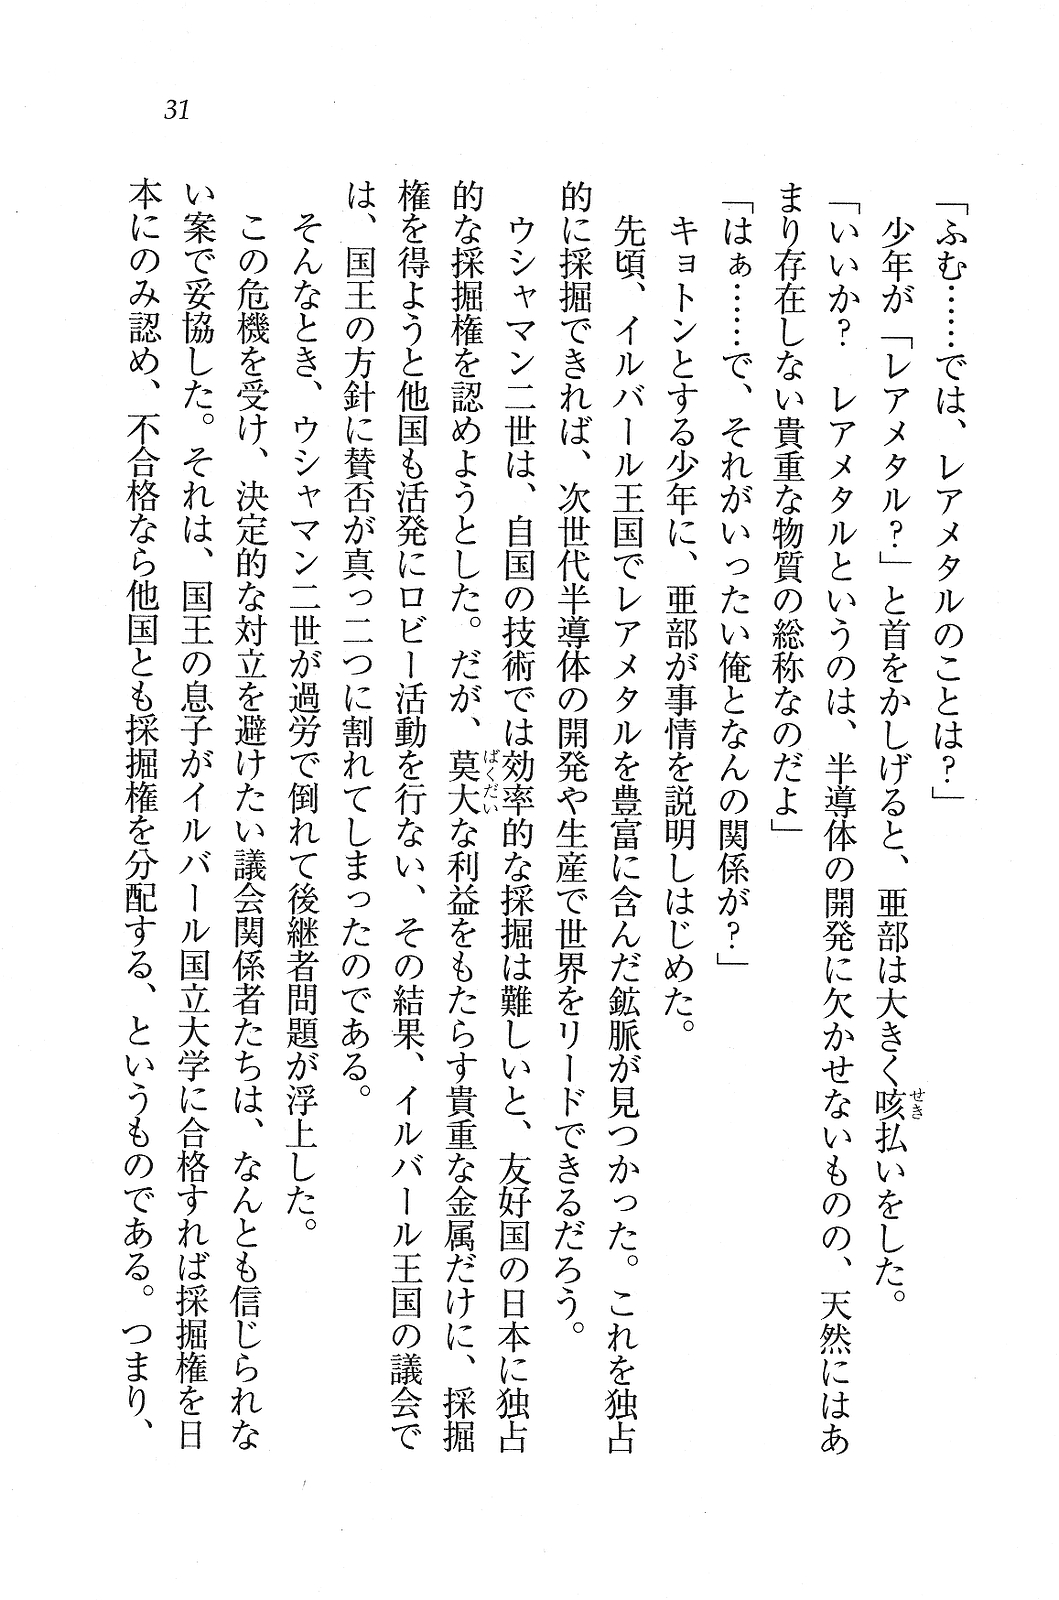 31
「ふむ……では、レアメタルのことは？」
少年が「レアメタル？」と首をかしげると、亜部は大きく咳払いをした。
せき
「いいか？　レアメタルというのは、半導体の開発に欠かせないものの、天然にはあ
まり存在しない貴重な物質の総称なのだよ」
「はぁ……で、それがいったい俺となんの関係が？」
キョトンとする少年に、亜部が事情を説明しはじめた。
先頃、イルバール王国でレアメタルを豊富に含んだ鉱脈が見つかった。これを独占
的に採掘できれば、次世代半導体の開発や生産で世界をリードできるだろう。
ウシャマン二世は、自国の技術では効率的な採掘は難しいと、友好国の日本に独占
的な採掘権を認めようとした。だが、莫大な利益をもたらす貴重な金属だけに、採掘
ばくだい
権を得ようと他国も活発にロビー活動を行ない、その結果、イルバール王国の議会で
は、国王の方針に賛否が真っ二つに割れてしまったのである。
そんなとき、ウシャマン二世が過労で倒れて後継者問題が浮上した。
この危機を受け、決定的な対立を避けたい議会関係者たちは、なんとも信じられな
い案で妥協した。それは、国王の息子がイルバール国立大学に合格すれば採掘権を日
本にのみ認め、不合格なら他国とも採掘権を分配する、というものである。つまり、